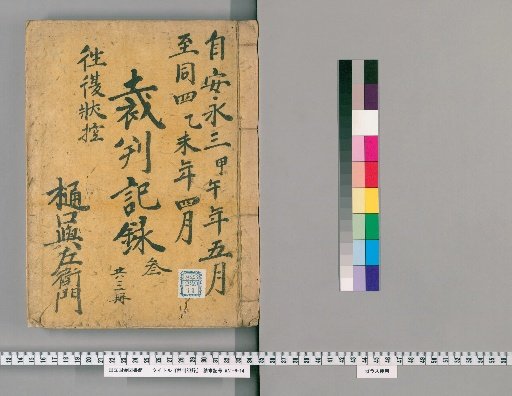 自安永三甲午年五月
至同四乙未年四月
裁判記録
叄
共三冊
往復状控
樋口與左衛門